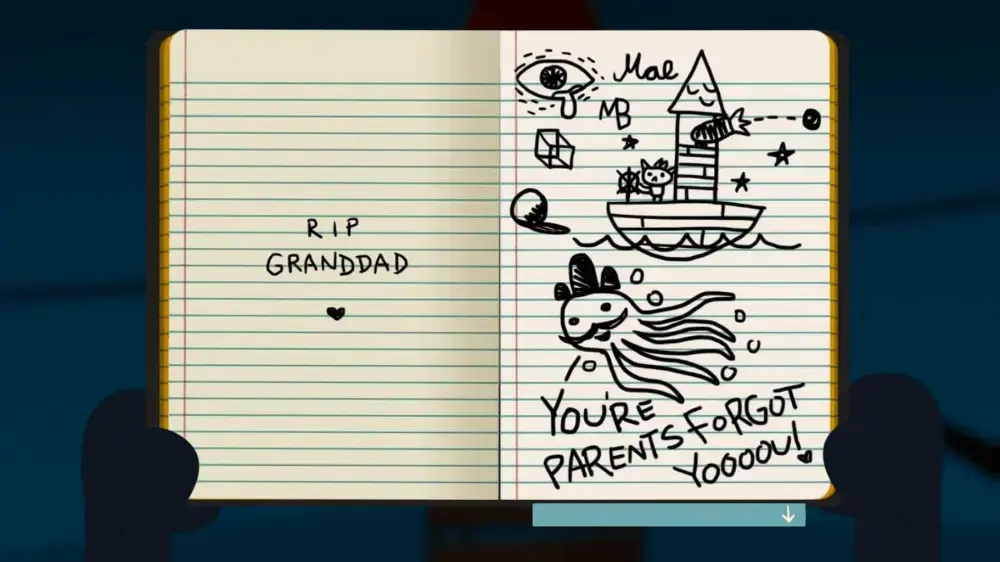 RIP
GRANDDAD
Mae
MB
YOU'RE
PARENTS FORGOT
YOOOOU!